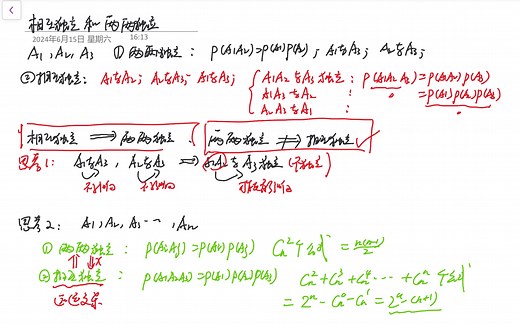 相互独立 和 两两独立
2024年6月15日 星期六 16:13
A₁, A₂, A₃ ① 两两独立: P(A₁A₂)=P(A₁)P(A₂); A₁与A₃; A₂与A₃;
② 相互独立: A₁与A₂; A₂与A₃; A₁与A₃; { A₁A₂与A₃独立: P(A₁A₂A₃)=P(A₁A₂)P(A₃)
A₁A₃与A₂ : =P(A₁)P(A₂)P(A₃)
A₂A₃与A₁ :
相互独立 ⟹ 两两独立. 两两独立 ⇏ 相互独立
思考1: A₁与A₃, A₂与A₃ ⟹ A₁A₂与A₃独立 (不独立)
思考2: A₁, A₂, A₃ ⋯, Aₙ
① 两两独立: P(AᵢAⱼ)=P(Aᵢ)P(Aⱼ) Cₙ²个公式 = n(n-1)/2
② 相互独立: P(A₁A₂A₃)=P(A₁)P(A₂)P(A₃) Cₙ²+Cₙ³+Cₙ⁴⋯+Cₙⁿ个公式
= 2ⁿ-Cₙ⁰-Cₙ¹=2ⁿ-(n+1)